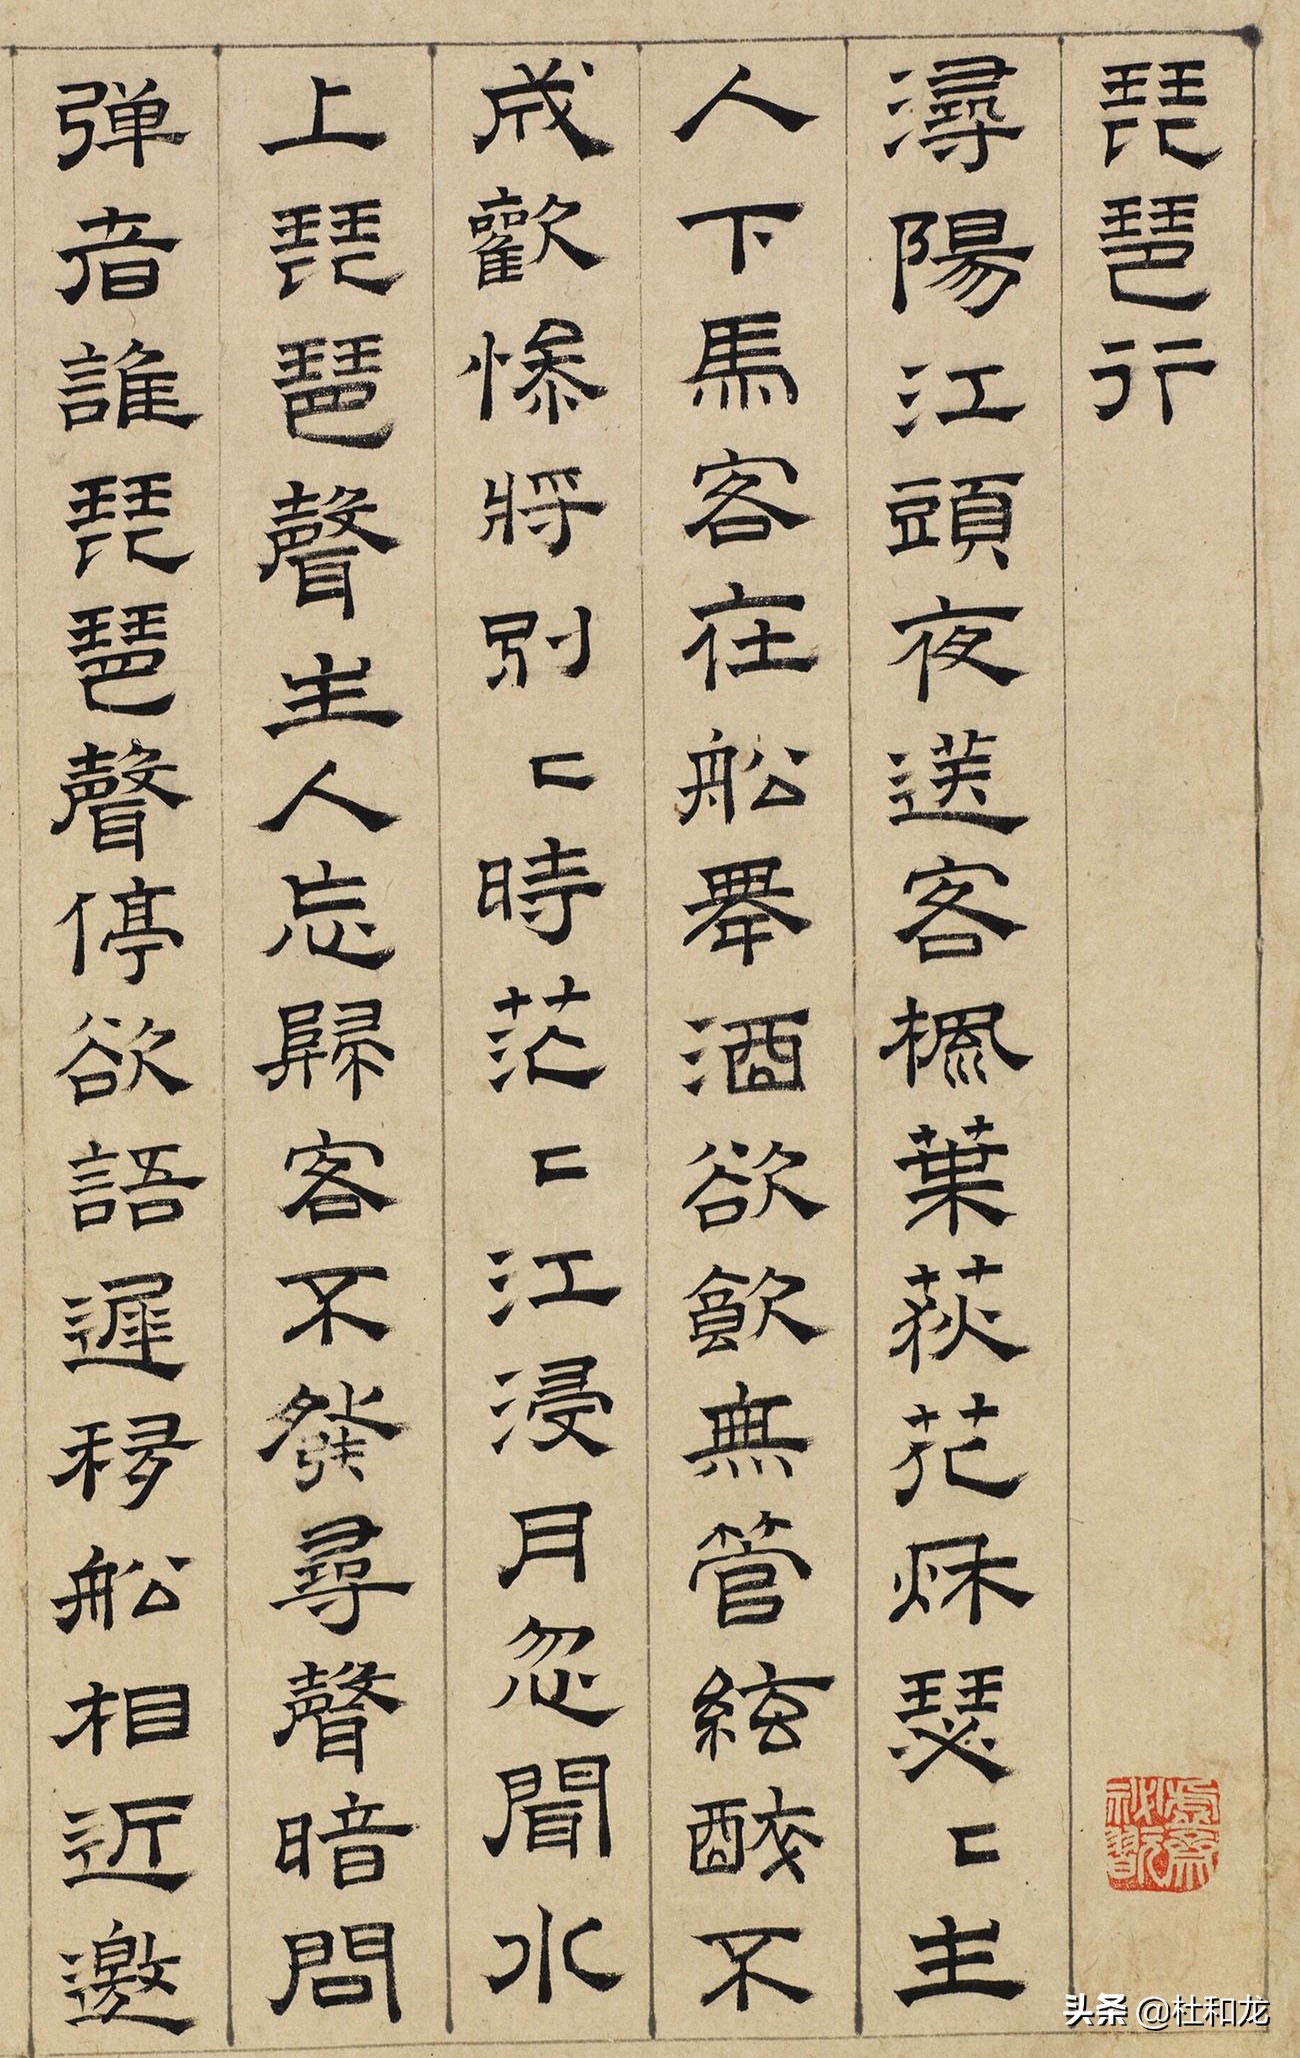 琵琶行
潯陽江頭夜送客楓葉荻花秌瑟〻主
人下馬客在舩舉酒欲飲無管絃醉不
成歡惨將別〻時茫〻江浸月忽聞水
上琵琶聲主人忘歸客不發尋聲暗問
弹者誰琵琶聲停欲語遲移舩相近邀
虛齋祕翫
头条 @杜和龙